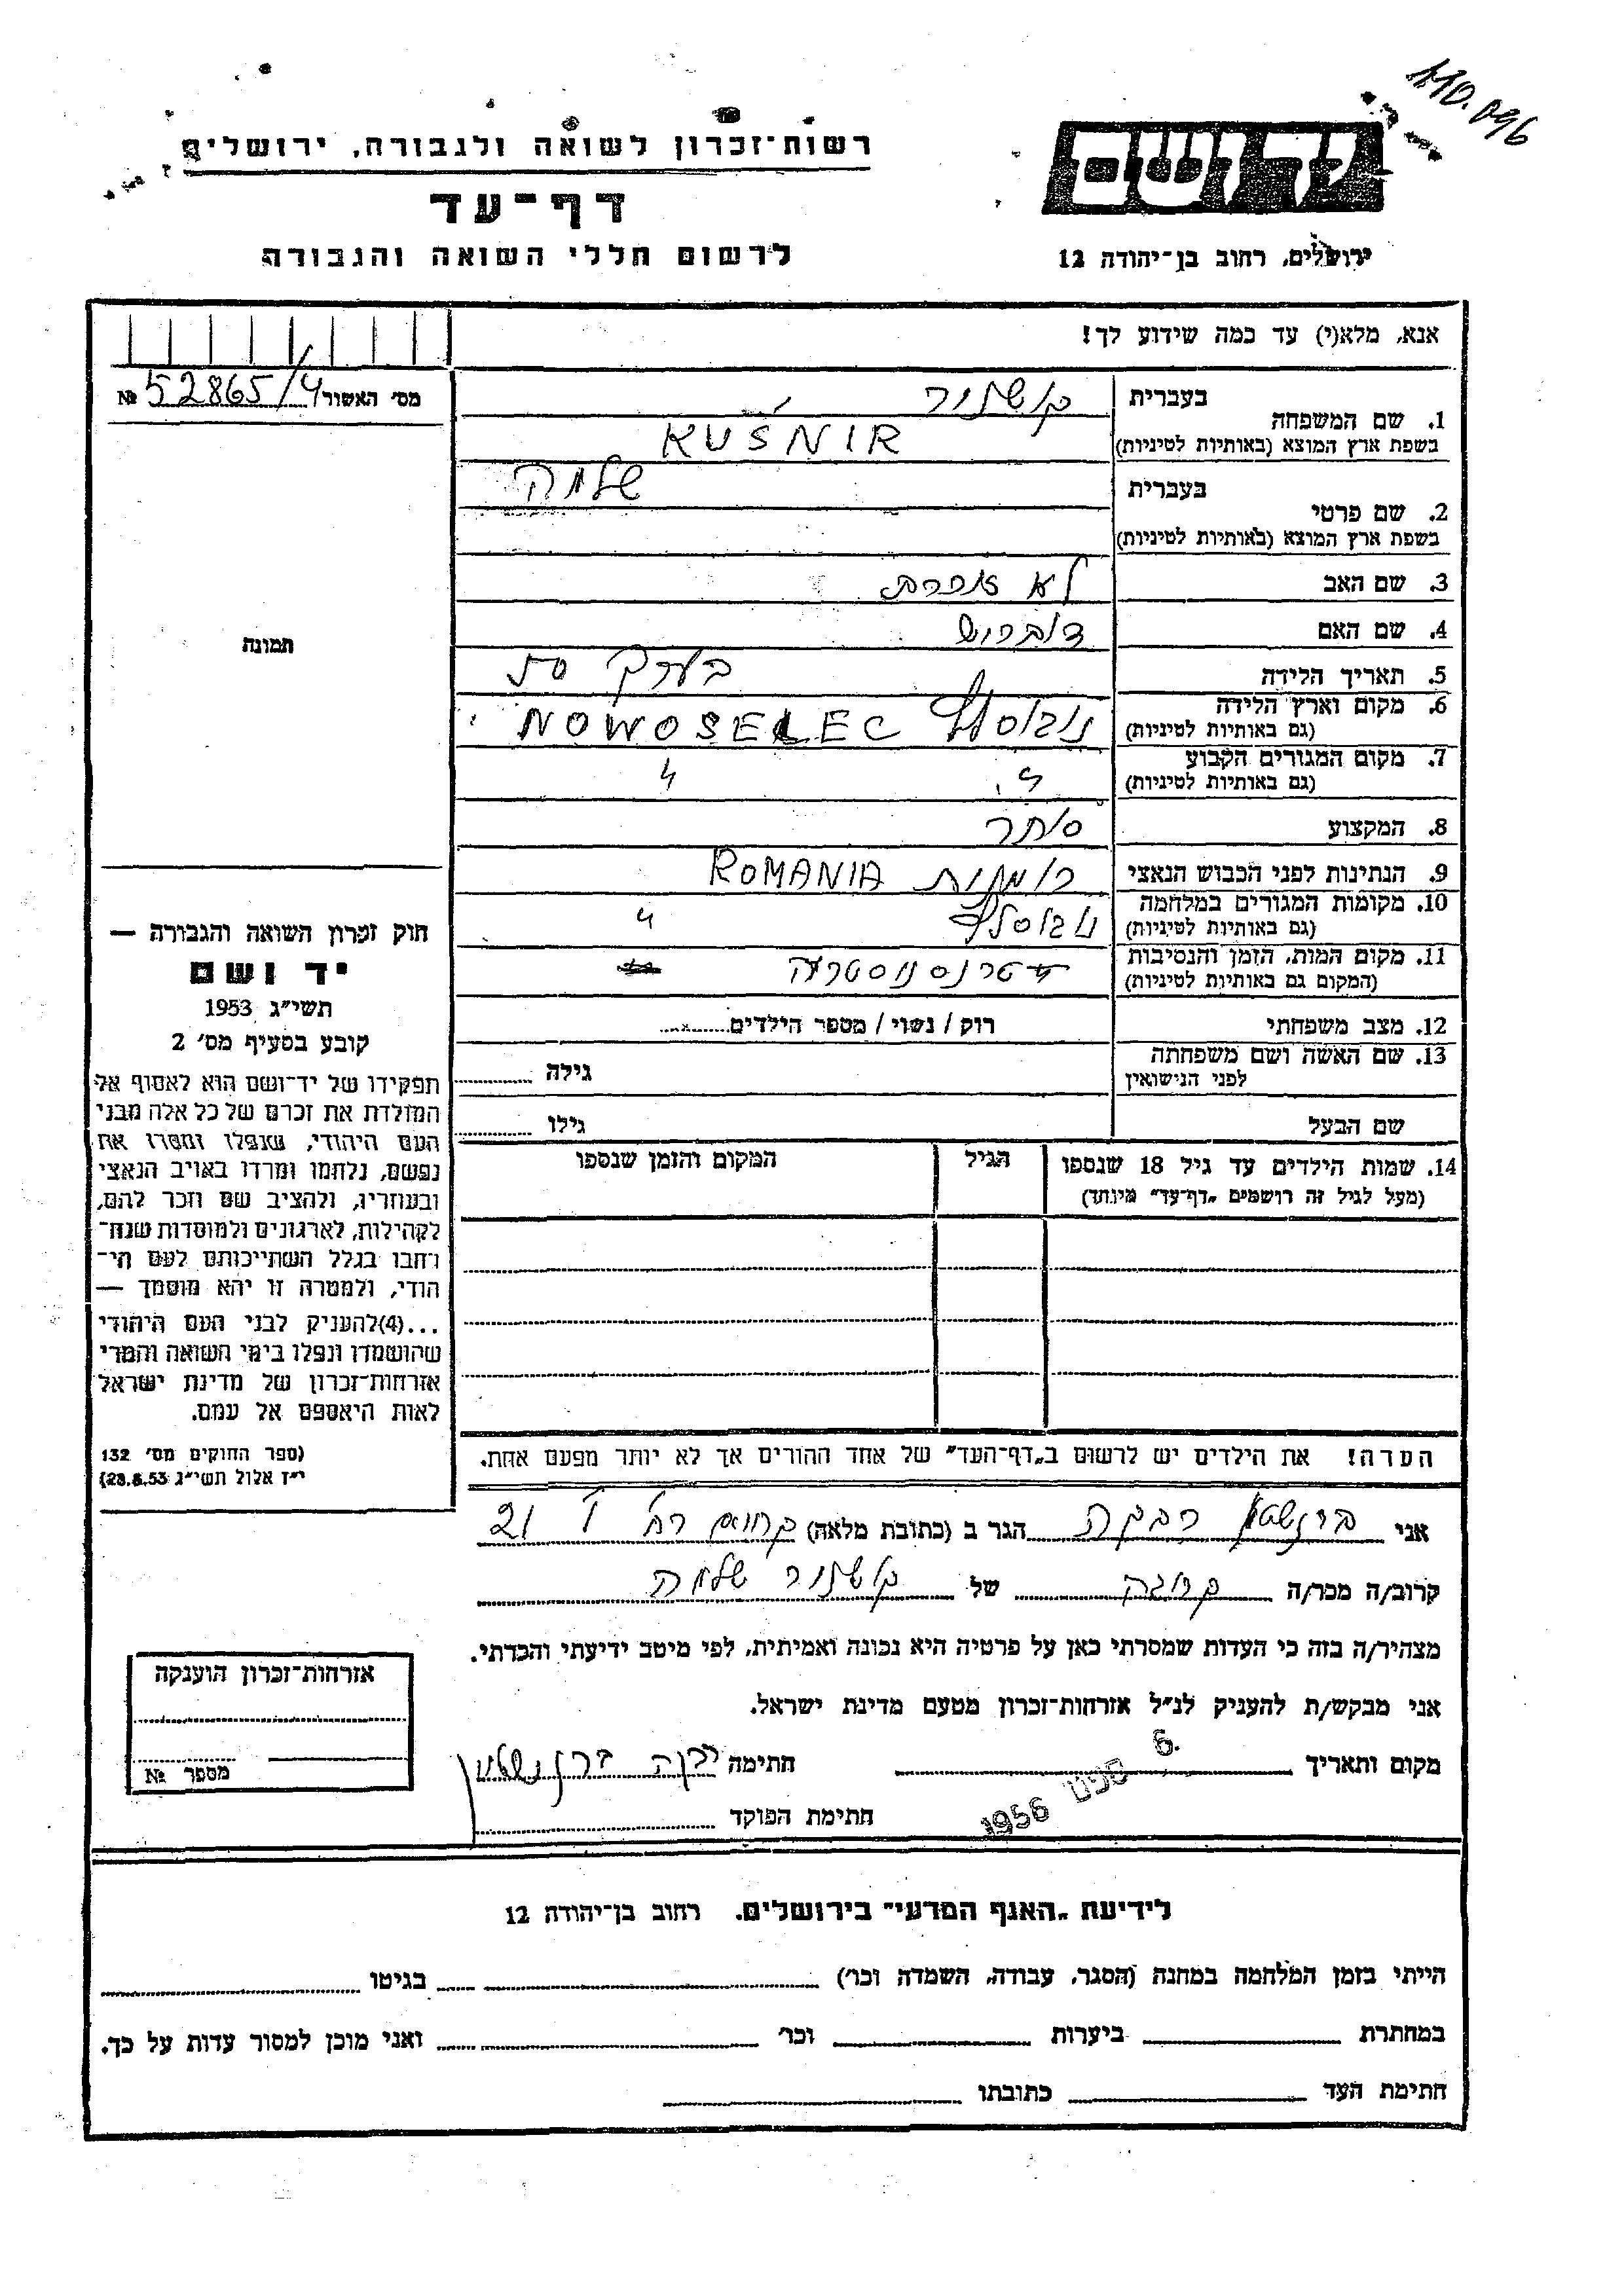 110.096
רשות־זכרון לשואה ולגבורה, ירושלים
יד ושם
דף־עד
לרשום חללי השואה והגבורה
ירושלים, רחוב בן־יהודה 12
אנא, מלא(י) עד כמה שידוע לך!
מס׳ האשור № 52865/4
1. שם המשפחה
בעברית קושניר
בשפת ארץ המוצא (באותיות לטיניות) KUŚNIR
2. שם פרטי
בעברית שלמה
בשפת ארץ המוצא (באותיות לטיניות)
3. שם האב לא זוכרת
4. שם האם
5. תאריך הלידה בערך
6. מקום וארץ הלידה
(גם באותיות לטיניות) NOWOSELEC
7. מקום המגורים הקבוע
(גם באותיות לטיניות)
8. המקצוע סוחר
9. הנתינות לפני הכבוש הנאצי רומנית ROMANIA
10. מקומות המגורים במלחמה
(גם באותיות לטיניות)
11. מקום המות, הזמן והנסיבות
(המקום גם באותיות לטיניות) טרנסניסטריה
12. מצב משפחתי רוק / נשוי / מספר הילדים
13. שם האשה ושם משפחתה
לפני הנישואין גילה
שם הבעל גילו
14. שמות הילדים עד גיל 18 שנספו הגיל המקום והזמן שנספו
(מעל לגיל זה רושמים „דף־עד״ מיוחד)
הערה! את הילדים יש לרשום ב„דף־העד״ של אחד ההורים אך לא יותר מפעם אחת.
תמונה
חוק זכרון השואה והגבורה —
יד ושם
תשי״ג 1953
קובע בסעיף מס׳ 2
תפקידו של יד־ושם הוא לאסוף אל
המולדת את זכרם של כל אלה מבני
העם היהודי, שנפלו ומסרו את
נפשם, נלחמו ומרדו באויב הנאצי
ובעוזריו, ולהציב שם וזכר להם,
לקהילות, לארגונים ולמוסדות שנח־
רבו בגלל השתייכותם לעם הי־
הודי, ולמטרה זו יהא מוסמך —
...(4)להעניק לבני העם היהודי
שהושמדו ונפלו בימי השואה והמרי
אזרחות־זכרון של מדינת ישראל
לאות היאספם אל עמם.
(ספר החוקים מס׳ 132
י״ז אלול תשי״ג 28.8.53)
אני ברנשטין רבקה הגר ב (כתובת מלאה) 21
קרוב/ה מכר/ה קרובה של קושניר שלמה
מצהיר/ה בזה כי העדות שמסרתי כאן על פרטיה היא נכונה ואמיתית, לפי מיטב ידיעתי והכרתי.
אני מבקש/ת להעניק לנ״ל אזרחות־זכרון מטעם מדינת ישראל.
מקום ותאריך 6. ספט 1956 חתימה רבקה ברנשטין
חתימת הפוקד
אזרחות־זכרון הוענקה
מספר №
לידיעת „האגף המדעי״ בירושלים. רחוב בן־יהודה 12
הייתי בזמן המלחמה במחנה (הסגר, עבודה, השמדה וכו׳) בגיטו
במחתרת ביערות וכו׳ ואני מוכן למסור עדות על כך.
חתימת העד כתובתו